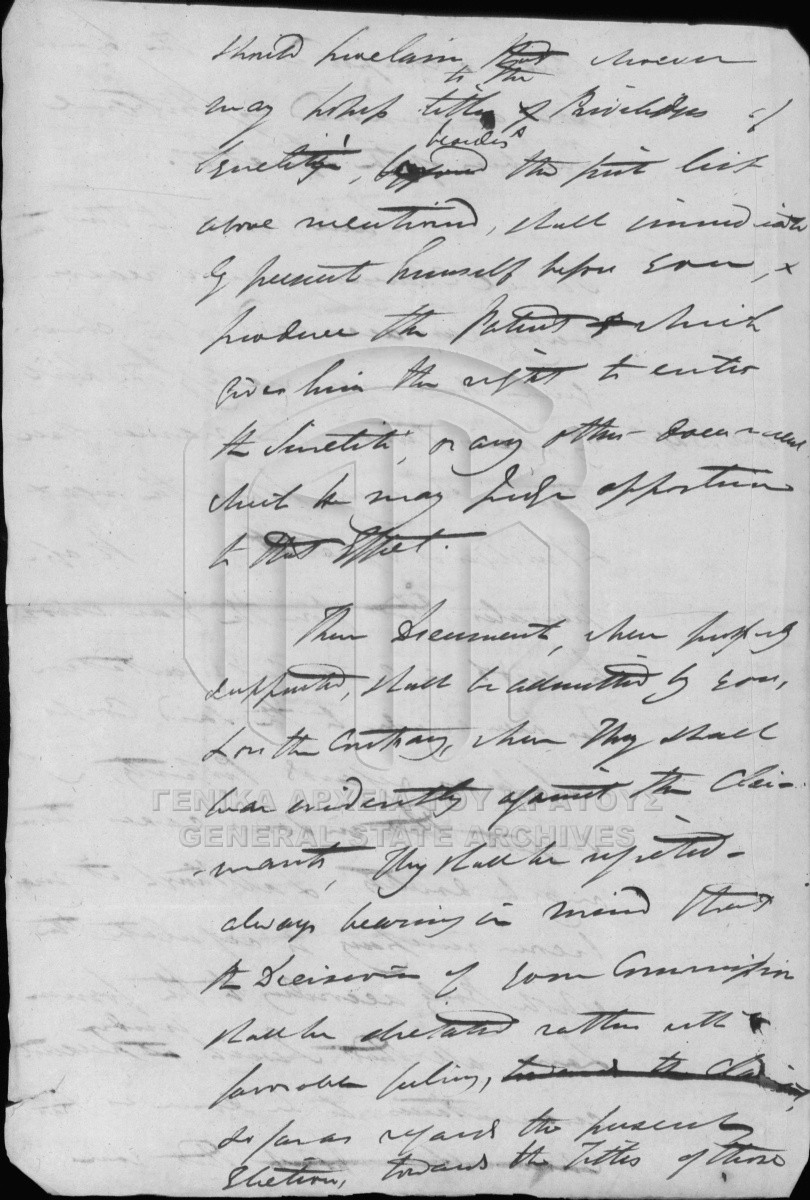 should proclaim, that whoever
to the
may possess titles & Priviledges of
besides
the first list
above mentioned, shall immediate
ly present himself before you, &
produce the Patent which
gives him the right to enter
the or any other document
which he may judge opportune
to that effect.
These Documents, when properly
supported, shall be admitted by you,
& on the Contrary, when they shall
bear evidently against the Clai-
-mants, they shall be rejected -
always bearing in mind that
the Decisions of your Commission
shall be dictated rather with
favorable feeling, towards the
so far as regards the present
Election, towards the Titles of those
ΓΕΝΙΚΑ ΑΡΧΕΙΑ ΤΟΥ ΚΡΑΤΟΥΣ
GENERAL STATE ARCHIVES